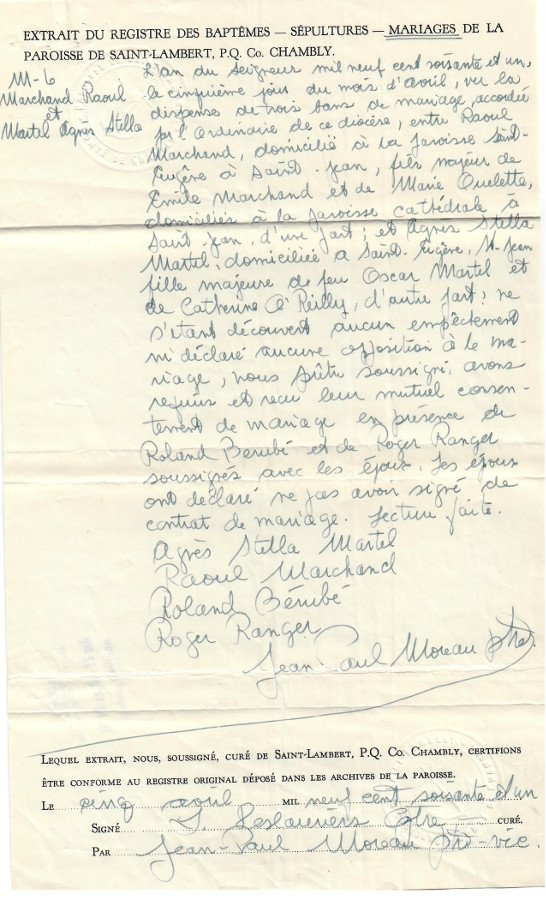 EXTRAIT DU REGISTRE DES BAPTÊMES — SÉPULTURES — MARIAGES DE LA
PAROISSE DE SAINT-LAMBERT, P.Q. CO. CHAMBLY.
M-6
Marchand Raoul
et
Martel Agnes Stella
L'an du Seigneur mil neuf cent soixante et un,
le cinquième jour du mois d'avril, vu la
dispense de trois bans de mariage, accordée
par l'ordinaire de ce diocèse, entre Raoul
Marchand, domicilié à la paroisse Saint-
Eugène à Saint-Jean, fils majeur de
Emile Marchand et de Marie Ouelette,
domiciliés à la paroisse cathédrale à
Saint-Jean, d'une part; et Agnes Stella
Martel, domiciliée à Saint-Eugène, St-Jean
fille majeure de feu Oscar Martel et
de Catherine O'Reilly, d'autre part; ne
s'étant découvert aucun empêchement
ni déclaré aucune opposition à le ma-
riage, nous prêtre soussigné, avons
requis et reçu leur mutuel consen-
tement de mariage en présence de
Roland Bérubé et de Roger Ranger
soussignés avec les époux. Les époux
ont déclaré ne pas avoir signé de
contrat de mariage. Lecture faite.
Agnès Stella Martel
Raoul Marchand
Roland Bérubé
Roger Ranger
Jean-Paul Moreau ptre.
LEQUEL EXTRAIT, NOUS, SOUSSIGNÉ, CURÉ DE SAINT-LAMBERT, P.Q. CO. CHAMBLY, CERTIFIONS
ÊTRE CONFORME AU REGISTRE ORIGINAL DÉPOSÉ DANS LES ARCHIVES DE LA PAROISSE.
LE cinq avril MIL neuf cent soixante et un
SIGNÉ CURÉ.
PAR Jean-Paul Moreau ptre-vic.